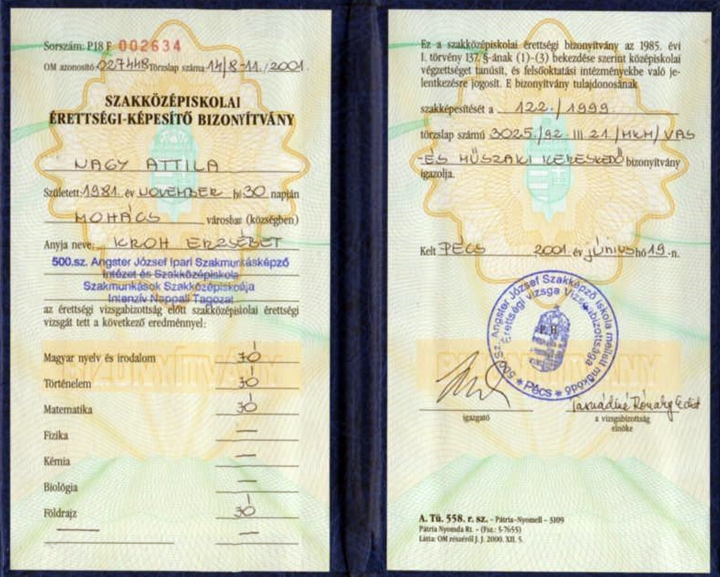 Sorszám: P18 F 002634
OM azonosító: 027448 Törzslap száma: 14/8-11./2001.
SZAKKÖZÉPISKOLAI
ÉRETTSÉGI-KÉPESÍTŐ BIZONYÍTVÁNY
NAGY ATTILA
Született: 1981. év NOVEMBER hó 30 napján
MOHÁCS városban (községben)
Anyja neve: KROH ERZSÉBET
500.sz. Angster József Ipari Szakmunkásképző
Intézet és Szakközépiskola
Szakmunkások Szakközépiskolája
Intenzív Nappali Tagozat
az érettségi vizsgabizottság előtt szakközépiskolai érettségi
vizsgát tett a következő eredménnyel:
Magyar nyelv és irodalom jó
Történelem jó
Matematika jó
Fizika —
Kémia —
Biológia —
Földrajz jó
— —
BIZONYÍTVÁNY
Ez a szakközépiskolai érettségi bizonyítvány az 1985. évi
I. törvény 137. §-ának (1)-(3) bekezdése szerint középiskolai
végzettséget tanúsít, és felsőoktatási intézményekbe való je-
lentkezésre jogosít. E bizonyítvány tulajdonosának
szakképesítését a 122./1999
törzslap számú 3025/92. III. 21/MKM/VAS
-ÉS MŰSZAKI KERESKEDŐ bizonyítvány
igazolja.
Kelt PÉCS 2001. év június hó 19.-n.
500. Sz. Angster József Szakképző Iskola mellett működő
Érettségi vizsga Vizsgabizottsága
P. H.
* Pécs *
igazgató
a vizsgabizottság
elnöke
BIZONYÍTVÁNY
A. Tü. 558. r. sz. – Pátria-Nyomell – 5109
Pátria Nyomda Rt. – (Fsz.: 5-7655)
Látta: OM részéről J. J. 2000. XII. 5.